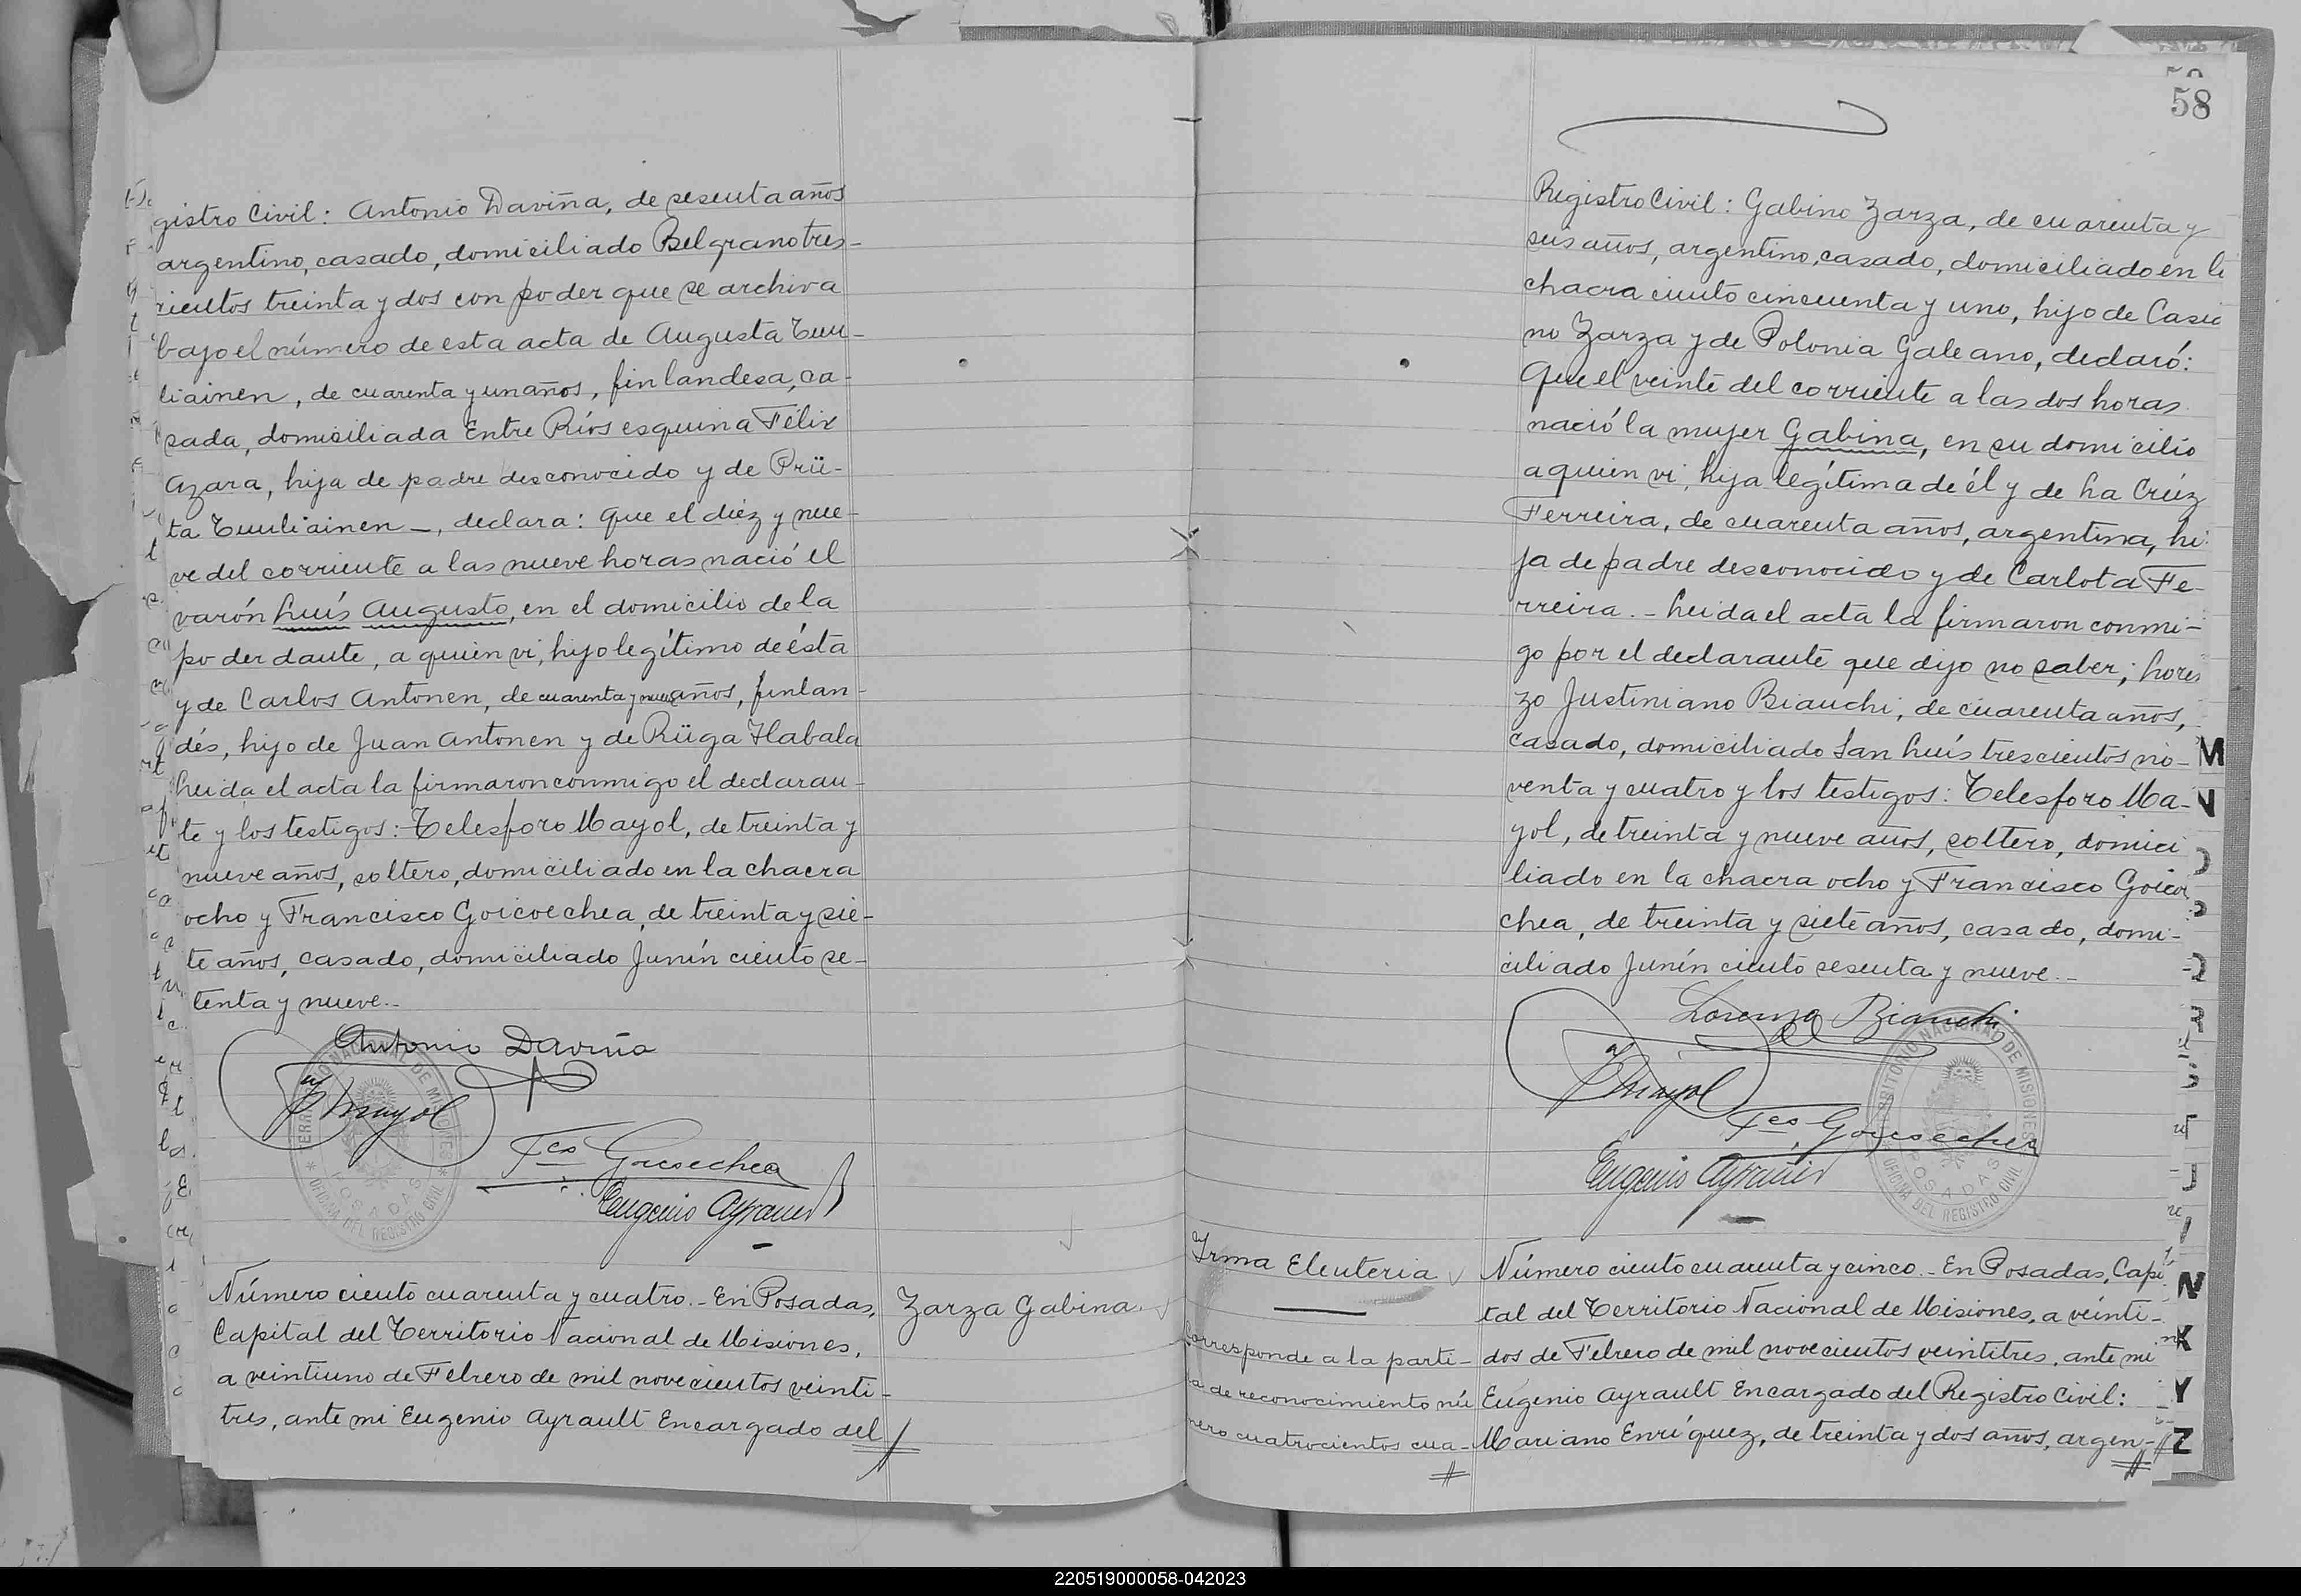 gistro Civil: Antonio Daviña, de sesenta años
argentino, casado, domiciliado Belgrano tres-
cientos treinta y dos con poder que se archiva
bajo el número de esta acta de Augusta Tuu-
liainen, de cuarenta y un años, finlandesa, ca-
sada, domiciliada Entre Ríos esquina Félix
Azara, hija de padre desconocido y de Prü-
ta Tuuliainen —, declara: Que el diéz y nue-
ve del corriente a las nueve horas nació el
varón Luís Augusto, en el domicilio de la
poderdante, a quien vi, hijo legítimo de ésta
y de Carlos Antonen, de cuarenta y nueve años, finlan-
dés, hijo de Juan Antonen y de Rüga Habala
Leida el acta la firmaron conmigo el declaran-
te y los testigos: Telesforo Mayol, de treinta y
nueve años, soltero, domiciliado en la chacra
ocho y Francisco Goicoechea, de treinta y sie-
te años, casado, domiciliado Junín ciento se-
tenta y nueve.-
Antonio Daviña
Mayol
Fco Goicoechea
Eugenio Ayrault
TERRITORIO NACIONAL DE MISIONES
POSADAS
OFICINA DEL REGISTRO CIVIL
Número ciento cuarenta y cuatro.- En Posadas,
Capital del Territorio Nacional de Misiones,
a veintiuno de Febrero de mil novecientos veinti-
tres, ante mi Eugenio Ayrault Encargado del
Zarza Gabina.
58
Registro Civil: Gabino Zarza, de cuarenta y
seis años, argentino, casado, domiciliado en la
chacra ciento cincuenta y uno, hijo de Casia
no Zarza y de Polonia Galeano, declaró:
Que el veinte del corriente a las dos horas
nació la mujer Gabina, en su domicilio
a quien vi, hija legítima de él y de La Crúz
Ferreira, de cuarenta años, argentina, hi-
ja de padre desconocido y de Carlota Fe-
rreira.- Leida el acta la firmaron conmi-
go por el declarante que dijo no saber; Loren
zo Justiniano Bianchi, de cuarenta años,
casado, domiciliado San Luís trescientos no-
venta y cuatro y los testigos: Telesforo Ma-
yol, de treinta y nueve años, soltero, domici
liado en la chacra ocho y Francisco Goicoe
chea, de treinta y siete años, casado, domi-
ciliado Junín ciento sesenta y nueve.-
Lorenzo Bianchi
Mayol
Fco Goicoechea
Eugenio Ayrault
TERRITORIO NACIONAL DE MISIONES
POSADAS
OFICINA DEL REGISTRO CIVIL
Irma Eleuteria
Corresponde a la parti-
da de reconocimiento nú
mero cuatrocientos cua-
Número ciento cuarenta y cinco.- En Posadas, Capi
tal del Territorio Nacional de Misiones, a veinti-
dos de Febrero de mil novecientos veintitres, ante mi
Eugenio Ayrault Encargado del Registro Civil:
Mariano Enríquez, de treinta y dos años, argen-
M
N
K
Y
Z
220519000058-042023